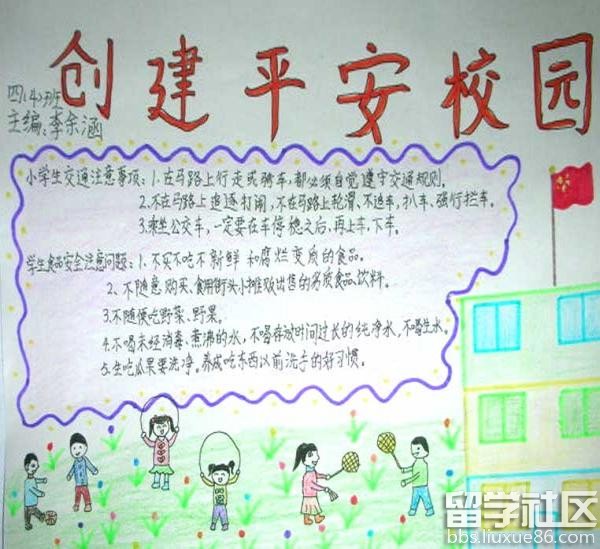 创建平安校园
四(4)班
主编:李余涵
小学生交通注意事项:1.在马路上行走或骑车,都必须自觉遵守交通规则。
2.不在马路上追逐打闹,不在马路上轮滑、不追车、扒车、强行拦车。
3.乘坐公交车,一定要在车停稳之后,再上车、下车。
学生食品安全注意问题:1、不买不吃不新鲜和腐烂变质的食品。
2、不随意购买、食用街头小摊贩出售的劣质食品、饮料。
3.不随便吃野菜、野果。
4.不喝未经消毒、煮沸的水,不喝存放时间过长的纯净水,不喝生水。
5.生吃瓜果要洗净。养成吃东西以前洗手的好习惯。
留学社区
bbs.liuxue86.com